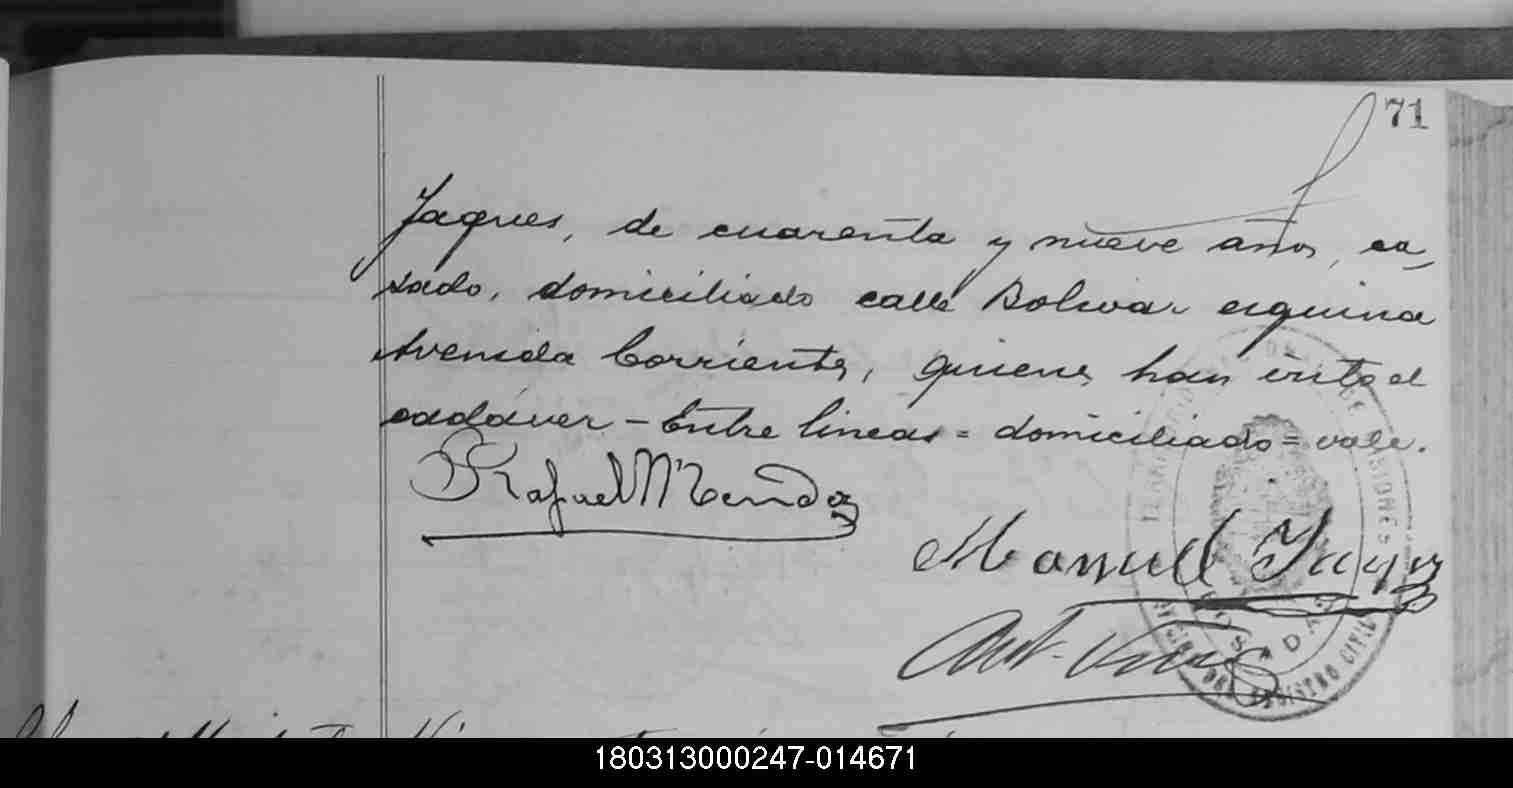 71
Jaques, de cuarenta y nueve años, ca-
sado, domiciliado calle Bolivar esquina
Avenida Corrientes, quienes han visto el
cadáver - Entre lineas = domiciliado = vale.
Rafael Mendez
Manuel
REGISTRO CIVIL
POSADAS
180313000247-014671